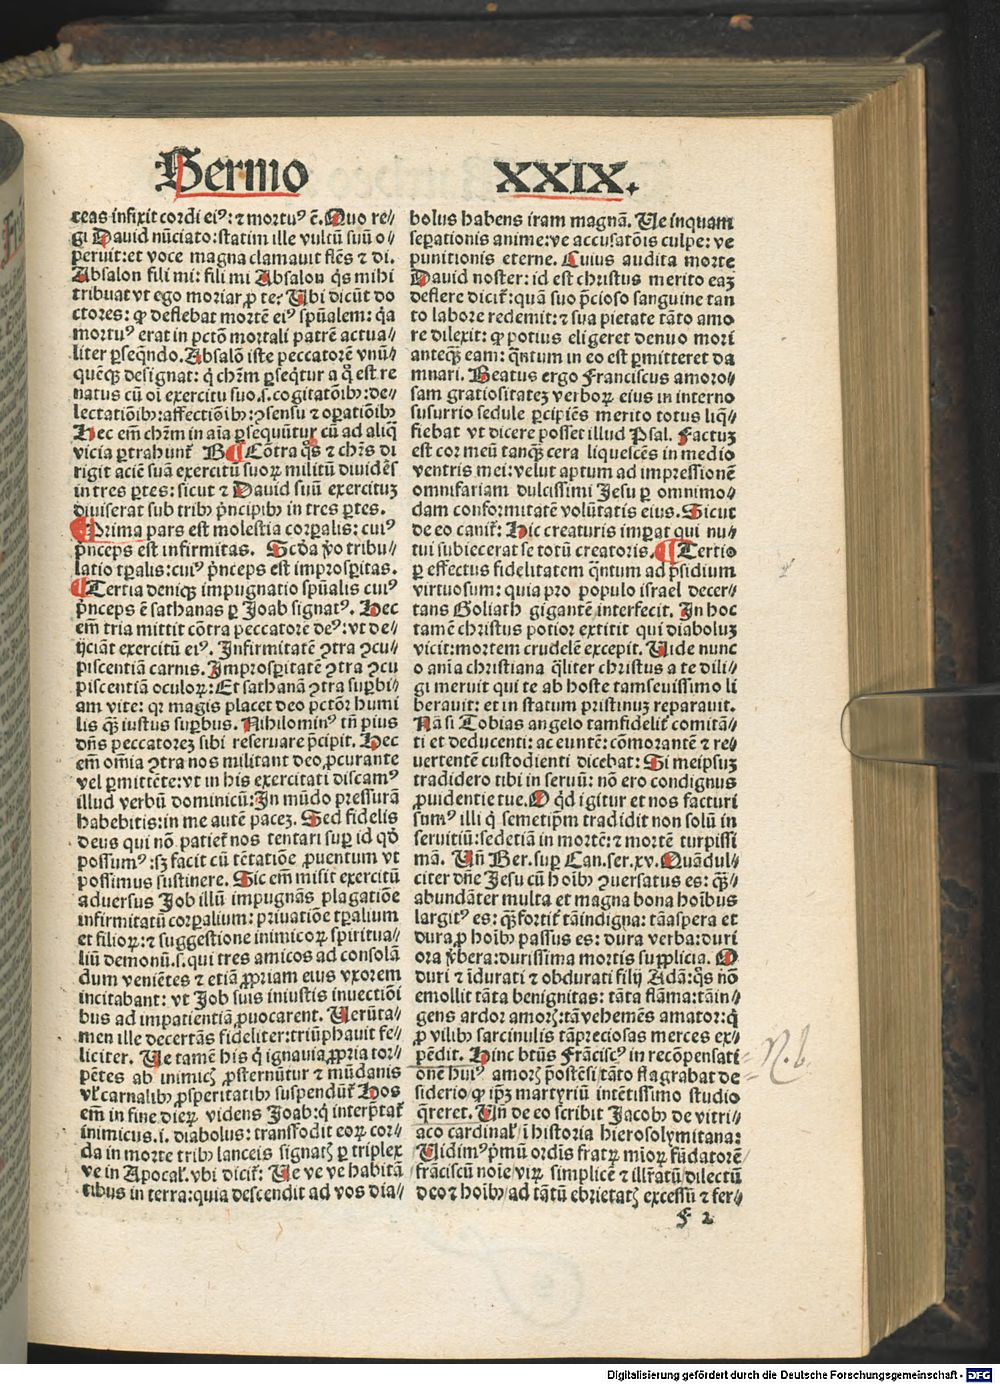 Sermo XXIX.
ceas infixit cordi eiꝰ: ⁊ mortuꝰ ē. Quo re//
gi Dauid nūciato: statim ille vultū suū o//
peruit: et voce magna clamauit flēs ⁊ di.
Absalon fili mi: fili mi Absalon q̄s mihi
tribuat vt ego moriar ꝓ te? Ubi dicūt do
ctores: ꝙ deflebat mortē eiꝰ spūalem: q̄a
mortuꝰ erat in pctō mortali patrē actua//
liter ꝑseq̄ndo. Absalō iste peccatorē vnū//
quēqꝫ designat: q̄ chr̄m ꝑseq̄tur a q̊ est re
natus cū oī exercitu suo .s. cogitatōibꝫ: de//
lectatiōibꝫ: affectiōibꝫ: ꝯsensu ⁊ oꝑatiōibꝫ
Hec em̄ chr̄m in aīa ꝑsequūtur cū ad aliq̄
vicia ꝑtrahunt᷑ B ¶ Cōtra q̊s ⁊ chr̄s di
rigit aciē suā exercitū suoꝝ militū diuidēs
in tres ꝑtes: sicut ⁊ Dauid suū exercituꝫ
diuiserat sub tribꝫ pͥncipibꝫ in tres ꝑtes.
¶ Prima pars est molestia corꝑalis: cuiꝰ
pͥnceps est infirmitas. Scd̄a ꝟo tribu//
latio tꝑalis: cuiꝰ pͥnceps est improsꝑitas.
¶ Tertia deniqꝫ impugnatio spūalis cuiꝰ
pͥnceps ē sathanas ꝑ Joab signatꝰ. Hec
em̄ tria mittit cōtra peccatore deꝰ: vt de//
ijciāt exercitū eiꝰ. Infirmitatē ꝯtra ꝯcu//
piscentiā carnis. Improsꝑitatē ꝯtra ꝯcu
piscentiā oculoꝝ: Et sathanā ꝯtra suꝑbi//
am vite: qꝛ magis placet deo pctōr humi
lis qꝫ iustus suꝑbus. Nihilominꝰ tn̄ pius
dn̄s peccatoreꝫ sibi reseruare p̄cipit. Hec
em̄ om̄ia ꝯtra nos militant deo ꝓcurante
vel ꝑmittēte: vt in his exercitati discamꝰ
illud verbū dominicū: In mūdo pressurā
habebitis: in me autē paceꝫ. Sed fidelis
deus qui nō patiet᷑ nos tentari suꝑ id qd̓
possumꝰ: sꝫ facit cū tētatiōe ꝓuentum vt
possimus sustinere. Sic em̄ misit exercitū
aduersus Job illū impugnās plagatiōe
infirmitatū corꝑalium: priuatiōe tꝑalium
et filioꝝ: ⁊ suggestione inimicoꝝ spiritua//
liū demonū .s. qui tres amicos ad consolā
dum veniētes ⁊ etiā ꝓpriam eius vxorem
incitabant: vt Job suis iniustis inuectiōi
bus ad impatientiā ꝓuocarent. Uerūta//
men ille decertās fideliter: triūphauit fe//
liciter. Ue tamē his q̄ ignauia ꝓpria tor//
pētes ab inimicꝭ ꝓsternūtur ⁊ mūdanis
vl᷑ carnalibꝫ ꝓsperitatibꝫ suspendūt᷑. Hos
em̄ in fine dieꝝ videns Joab: q̄ interp̄tat᷑
inimicus .i. diabolus: transfodit eoꝝ cor//
da in morte tribꝫ lanceis signatꝭ ꝑ triplex
ve in Apocal᷑. vbi dicit᷑: Ue ve ve habitā
tibus in terra: quia descendit ad vos dia//
bolus habens iram magnā. Ue inquam
seꝑationis anime: ve accusatōis culpe: ve
punitionis eterne. Cuius audita morte
Dauid noster: id est christus merito eaꝫ
deflere dicit᷑: quā suo p̄cioso sanguine tan
to labore redemit: ⁊ sua pietate tāto amo
re dilexit: ꝙ potius eligeret denuo mori
anteqꝫ eam: q̄ntum in eo est ꝑmitteret da
mnari. Beatus ergo Franciscus amoro//
sam gratiositateꝫ verboꝝ eius in interno
susurrio sedule ꝑcipiēs merito totus liq̄//
fiebat vt dicere posset illud Psal. Factuꝫ
est cor meū tanqꝫ cera liquescēs in medio
ventris mei: velut aptum ad impressionē
omnifariam dulcissimi Jesu ꝑ omnimo//
dam conformitatē volūtatis eius. Sicut
de eo canit᷑: Hic creaturis imꝑat qui nu//
tui subiecerat se totū creatoris. ¶ Tertio
ꝑ effectus fidelitatem q̄ntum ad p̄sidium
virtuosum: quia pro populo israel decer//
tans Goliath gigantē interfecit. In hoc
tamē christus potior extitit qui diaboluꝫ
vicit: mortem crudelē excepit. Uide nunc
o anīa christiana q̄liter christus a te dili//
gi meruit qui te ab hoste tamseuissimo li
berauit: et in statum pristinuꝫ reparauit.
Nā si Tobias angelo tamfidelit᷑ comitā//
ti et deducenti: ac euntē: cōmorantē ⁊ re//
uertentē custodienti dicebat: Si meipsuꝫ
tradidero tibi in seruū: nō ero condignus
ꝓuidentie tue. O qͥd igitur et nos facturi
sumꝰ illi q̄ semetip̄m tradidit non solū in
seruitiū: sed etiā in mortē: ⁊ mortē turpissi
mā. Un̄ Ber. suꝑ Can. ser. xv. Quādul//
citer dn̄e Jesu cū hoībꝫ ꝯuersatus es: qꝫ//
abundāter multa et magna bona hoībus
largitꝰ es: qꝫ fortit᷑ tā indigna: tā aspera et
dura ꝓ hoībꝫ passus es: dura verba: duri
ora ꝟbera: durissima mortis supplicia. O
duri ⁊ īdurati ⁊ obdurati filij Adā: q̊s nō
emollit tāta benignitas: tāta flāma: tā in//
gens ardor amorꝭ: tā vehemēs amator: q̄
ꝓ vilibꝫ sarcinulis tā preciosas merces ex//
pēdit. Hinc btūs Frāciscꝰ in recōpensati
onē huiꝰ amorꝭ p̄ostēsi, tāto flagrabat de
siderio ꝙ ip̄ꝫ martyriū intētissimo studio
q̄reret. Un̄ de eo scribit Jacobꝫ de vitri//
aco cardinal᷑ ī historia hierosolymitana:
Uidimꝰ pͥmū ordīs fratꝝ mīoꝝ fūdatorē
frāciscū noīe virꝝ simplicē ⁊ illr̄atū dilectū
deo ⁊ hoībꝫ, ad tātū ebrietatꝭ excessū ⁊ fer//
f 2
N. b.
Digitalisierung gefördert durch die Deutsche Forschungsgemeinschaft - DFG